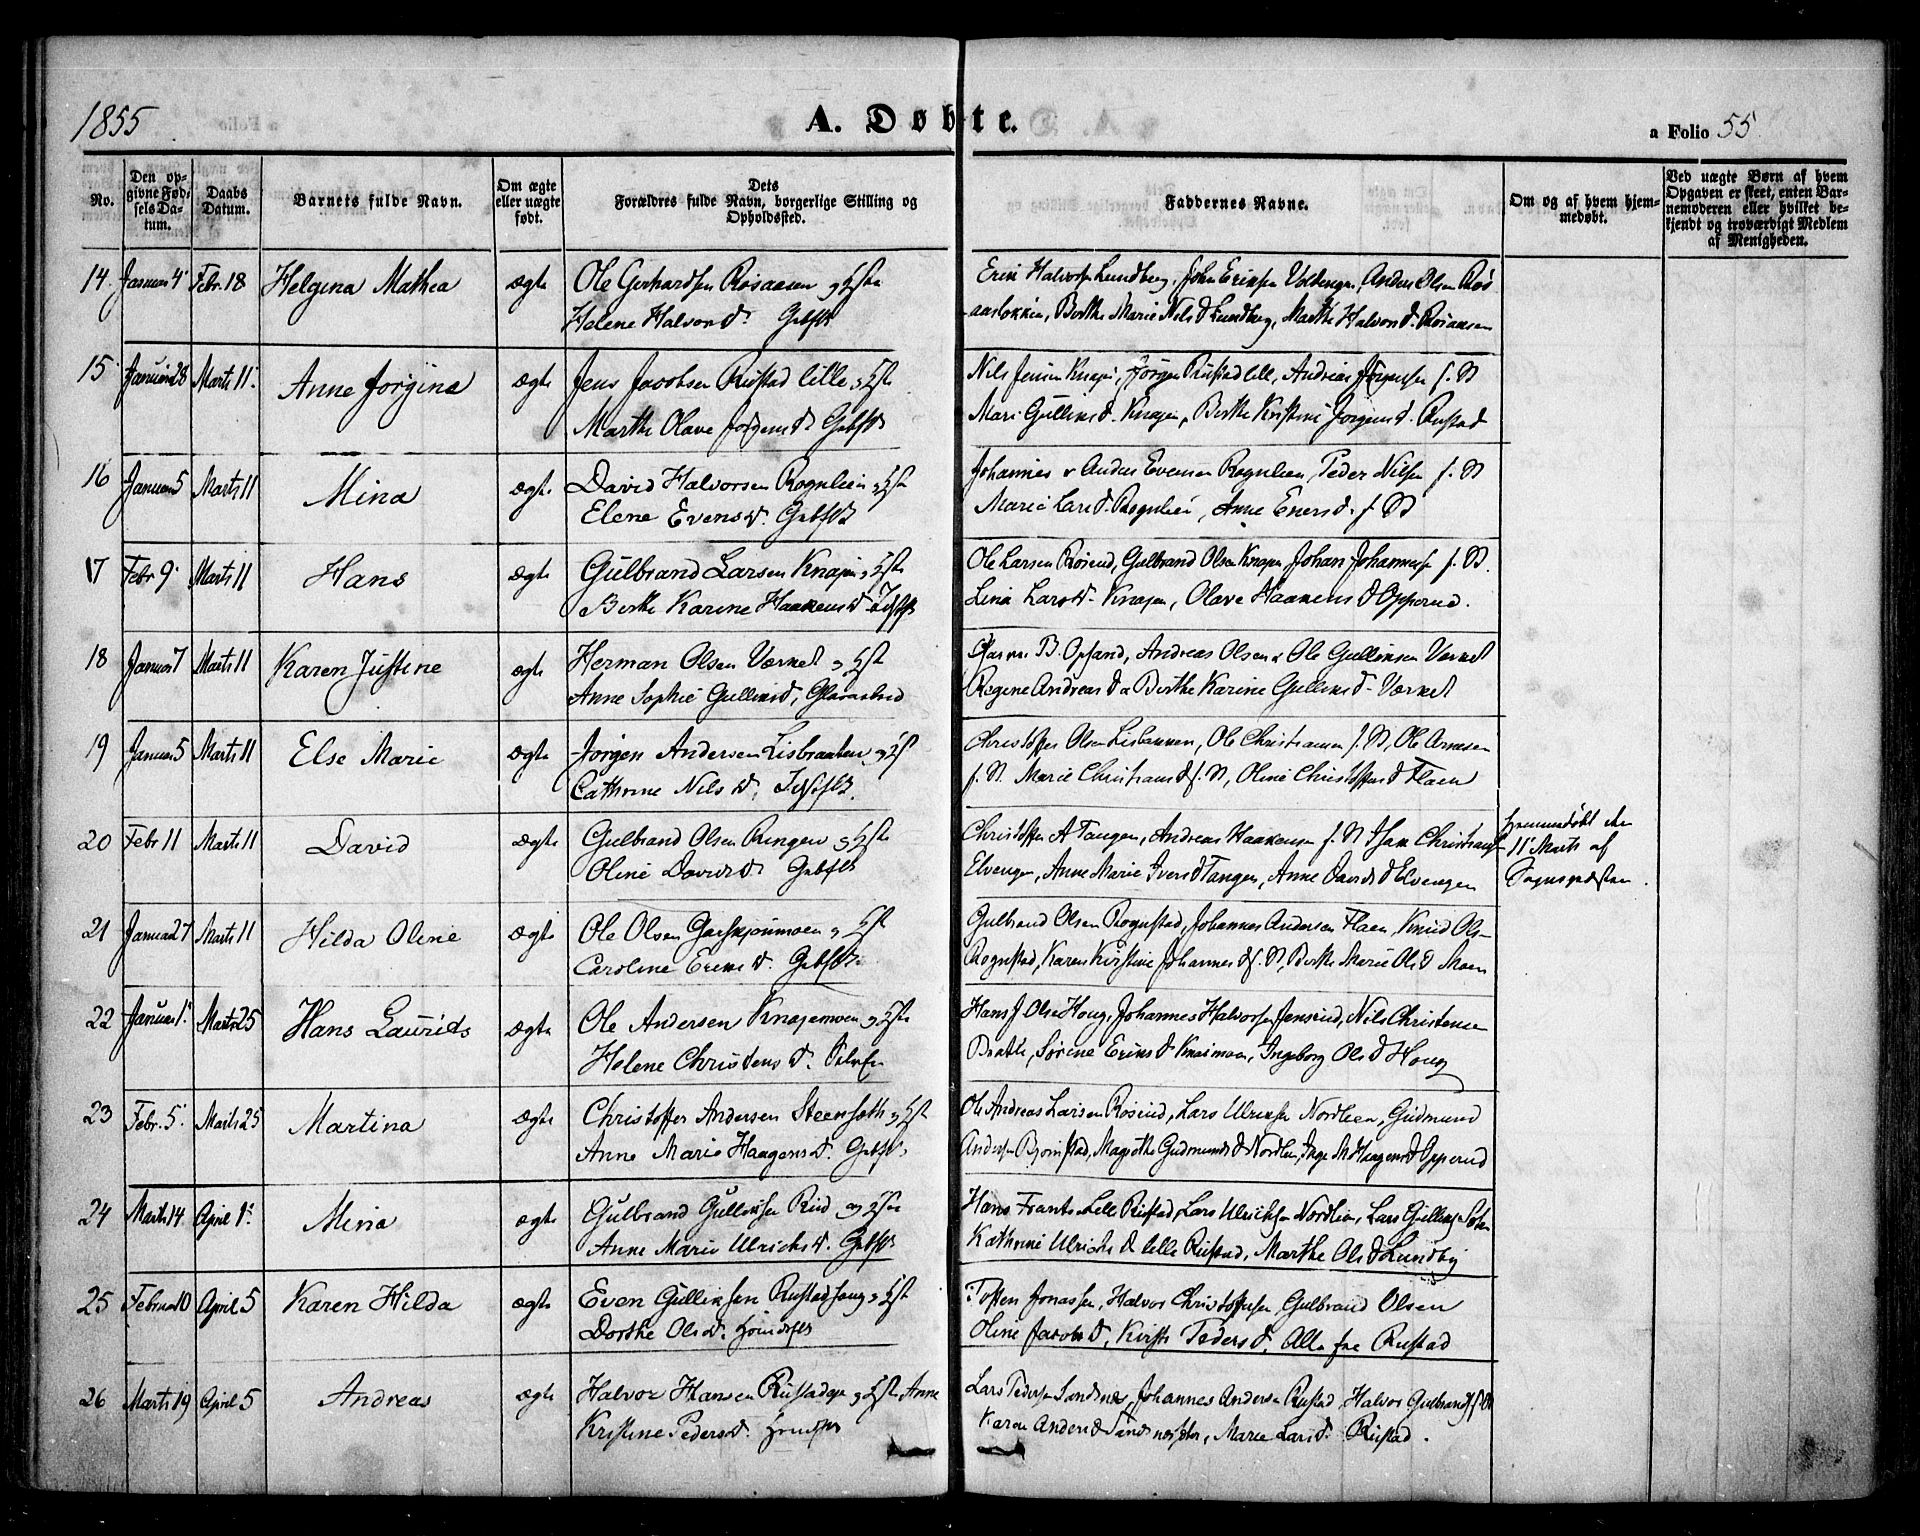 1855
A. Døbte.
a Folio 55.
No.
Den opgivne Fødselsdatum.
Daabs Datum.
Barnets fulde Navn.
Om ægte eller uægte født.
Dets Forældres fulde Navn, borgerlige Stilling og Opholdssted.
Faddernes Navne.
Om og af hvem hjemmedøbt.
Ved uægte Børn af hvem Opgaven er skeet, enten Barnemoderen eller hvilket bekjendt og troværdigt Medlem af Menigheden.
14. Januar 4 Febr. 18 Helgina Mathea ægte Ole Gerhardsen Rosaasen og Hst
Helene Halvorsd. Gbflk
Erik Halvorsen Lundberg, John Eriksen Voldengen, Anders Olsen Ros
aasløkken, Berthe Marie Nilsd Lundberg, Marthe Halvorsd. Rosaasen
15 Januar 28 Marts 11 Anne Jorgina ægte Jens Jacobsen Rustad lille og Hst
Marthe Olave Jorgensd Gbflk
Nils Jensen Knapen, Jørgen Rustad lille, Andreas Jørgensen f. St
Mari Gulliksd. Knapen, Berthe Kristine Jorgensd. Rustad
16 Januar 5 Marts 11 Mina ægte David Halvorsen Rognlien og Hst
Elene Evensd. Gbflk
Johannes & Anders Evensen Rognlien, Peder Nilsen f. St
Marie Larsd. Rognlien, Anne Enersd. f. St
17 Febr 9 Marts 11 Hans ægte Gulbrand Larsen Knapen og Hst
Berthe Karine Haakensd
Ole Larsen Rosrud, Gulbrand Olsen Knapen, Johan Johannesen f. St.
Lina Larsd. Knapen, Olave Haakensd Opperud.
18 Januar 7 Marts 11 Karen Justine ægte Herman Olsen Værket og Hst
Anne Sophie Gulliksd,
B. Opsand, Andreas Olsen & Ole Gulliksen Værket
Regine Andreasd & Berthe Karine Gulliksd. Værket
19 Januar 5 Marts 11 Else Marie ægte Jorgen Andersen Lisbraaten og Hst
Cathrine Nilsd.
Christoffer Olsen Lisbraaten, Ole Christiansen f. St, Ole Arnesen
f. St. Marie Christiansd f. St, Oline Christoffersd Flaen
20 Febr 11 Marts 11 David ægte Gulbrand Olsen Ringen og Hst
Oline Davidsd. Gbflk
Christoffer A Tangen, Andreas Haakensen f. St
Elvengen, Anne Marie Iversd Tangen, Anne Davidsd Elvengen
hjemmedøbt den
11 Marts af
Sognepræsten.
21 Januar 27 Marts 11 Hilda Oline ægte Ole Olsen Garsjømoen og Hst
Caroline Eriksd. Gbflk
Gulbrand Olsen Rognstad, Johannes Andersen Flaen, Knud Ols
Rognstad, Karen Kirstine Johannesd f. St, Berthe Marie Olsd Moen
22 Januar 1 Marts 25 Hans Laurids ægte Ole Andersen Knapemoen og Hst
Helene Christensd.
Hans J Olsen Houg, Johannes Halvorsen Jensrud, Nils Christensen
Braathe, Sørine Eriksd Knapemoen, Ingeborg Olsd Houg
23 Febr. 5 Marts 25 Martina ægte Christoffer Andersen Steensæth og Hst
Anne Marie Haagensd. Gbflk
Ole Andreas Larsen Rosrud, Lars Ulriksen Nordlien, Gudmund
Andersen Bjørnstad, Magrethe Gudmundsd Nordlien, Inge M Haagensd Opperud
24 Marts 14 April 1 Mina ægte Gulbrand Gulliksen Rud og Hst
Anne Marie Ulriksd. Gbflk
Hans Frants Lille Rustad, Lars Ulriksen Nordlien, Lars Gulliks
Kathrine Ulriksd lille Rustad, Marthe Olsd Lundby
25 Februar 10 April 5 Karen Hilda ægte Even Gulliksen Rustadhaug og Hst
Dorthe Olsd.
Tosten Jonassen, Halvor Christoffersen, Gulbrand Olsen
Oline Jacobsd, Kirsti Pedersd. Alle fra Rustad
26 Marts 19 April 5 Andreas ægte Halvor Hansen Rustadeje og Hst Anne
Kristine Pedersd.
Lars Pedersen Sandnes, Johannes Andersen Rustad, Halvor Gulbrands f St
Karen Andersd, Marie Larsd. Rustad.